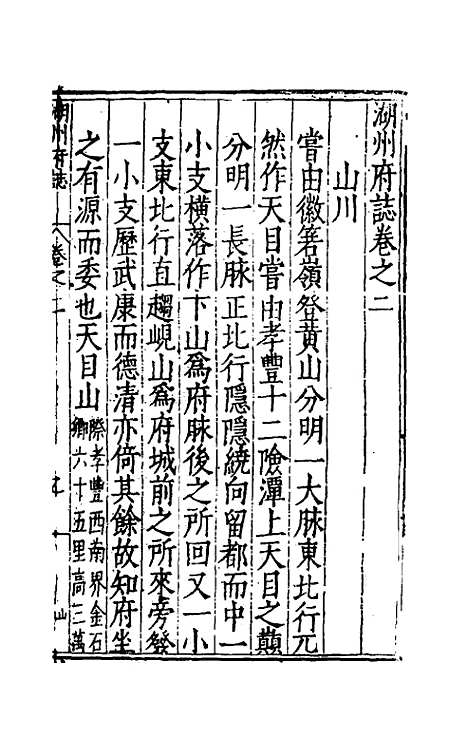 湖州府誌卷之二
山川
嘗由徽箬嶺登黃山分明一大脉東北行兀
然作天目嘗由孝豐十二險潭上天目之巔
分明一長脉正北行隱隱繞向留都而中一
小支橫落作卞山爲府脉後之所回又一小
支東北行直趨峴山爲府城前之所來旁發
一小支歷武康而德清亦倚其餘故知府坐
之有源而委也天目山
際孝豐西南界金石
鄉六十五里高三萬
湖州府誌
卷之二